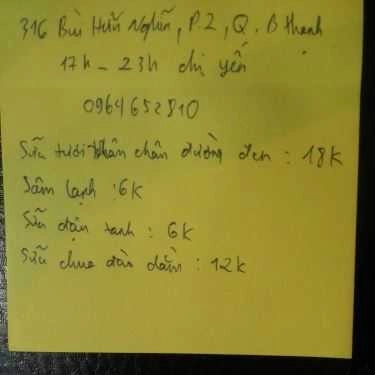 316 Bùi Hữu Nghĩa, P.2, Q. B thạnh
17h - 23h chị yến
0964652810
Sữa tươi trân chân đường đen : 18k
Sâm lạnh : 6k
Sữa đậu nành : 6k
Sữa chua dầm : 12k